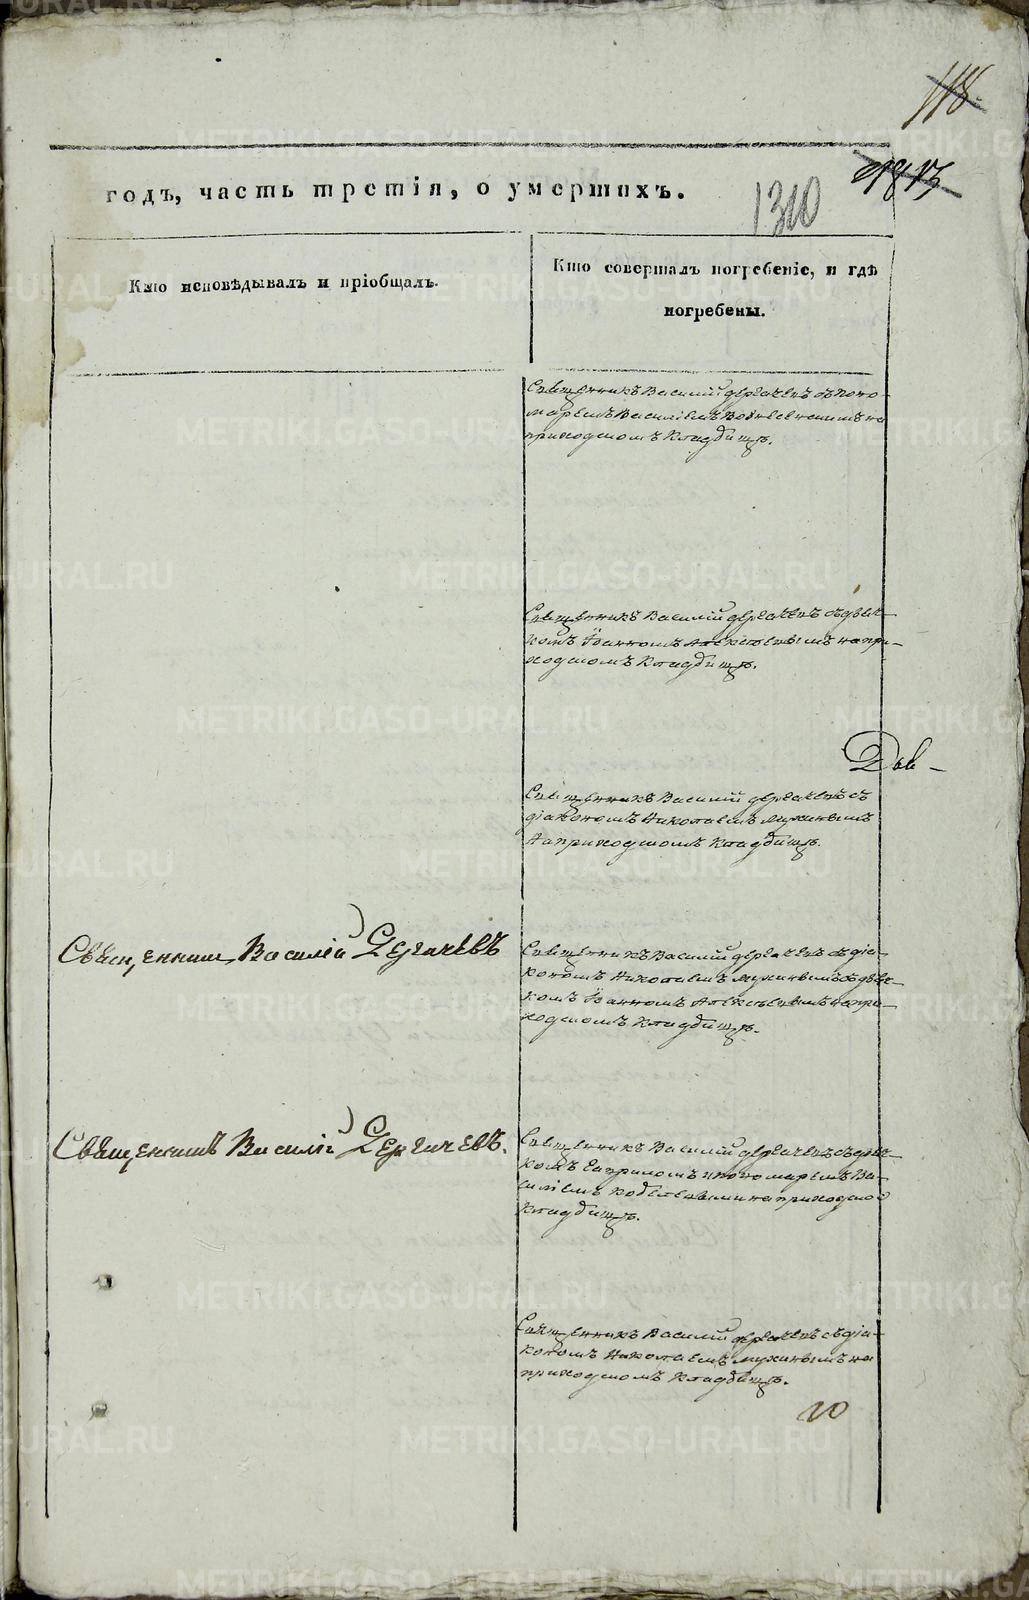 118.
1813
1310
годъ, часть третія, о умершихъ.
Кто исповѣдывалъ и пріобщалъ.
Кто совершалъ погребеніе, и гдѣ
погребены.
Священникъ Василій Дергачевъ съ поно-
маремъ Василіемъ на
приходскомъ кладбищѣ.
Священникъ Василій Дергачевъ съ дьяч-
комъ Іоанномъ Алексѣевымъ на при-
ходскомъ кладбищѣ.
Священникъ Василій Дергачевъ съ
діакономъ Николаемъ Мухинымъ
на приходскомъ кладбищѣ.
Священникъ Василій Дергачевъ
Священникъ Василій Дергачевъ съ діа-
кономъ Николаемъ Мухинымъ съ дьяч-
комъ Іоанномъ Алексѣевымъ на при-
ходскомъ кладбищѣ.
Священникъ Василій Дергачевъ.
Священникъ Василій Дергачевъ съ дьяч-
комъ и пономаремъ Ва-
силіемъ на приходско
кладбищѣ.
Священникъ Василій Дергачевъ съ діа-
кономъ Николаемъ Мухинымъ на
приходскомъ кладбищѣ.
METRIKI.GASO-URAL.RU